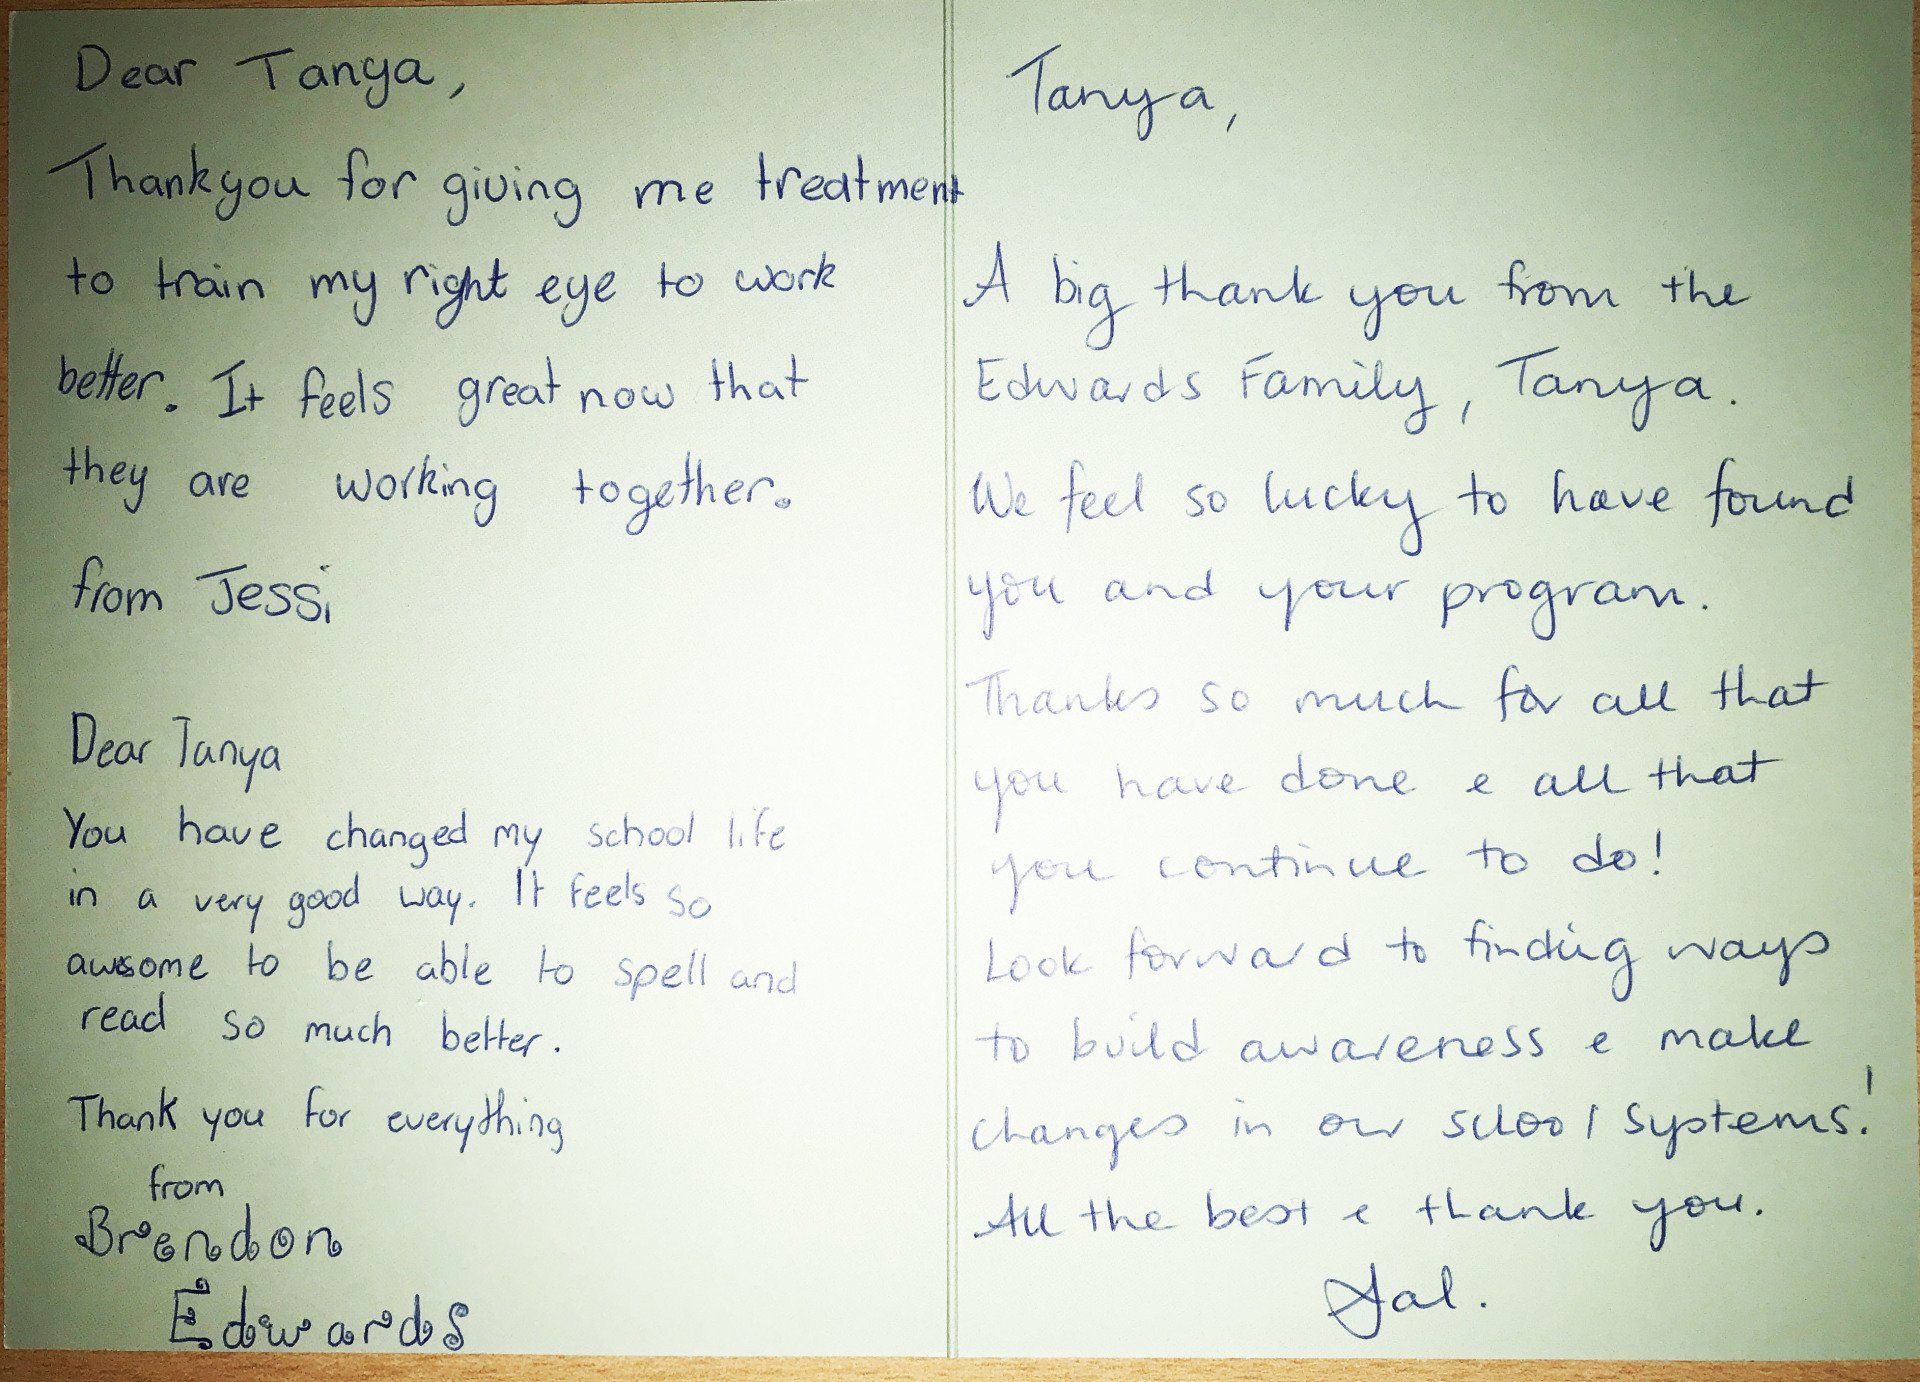 Dear Tanya,
Thankyou for giving me treatment
to train my right eye to work
better. It feels great now that
they are working together.
from Jessi
Dear Tanya
You have changed my school life
in a very good way. It feels so
awesome to be able to spell and
read so much better.
Thank you for everything
from
Brendon
Edwards
Tanya,
A big thank you from the
Edwards Family, Tanya.
We feel so lucky to have found
you and your program.
Thanks so much for all that
you have done e all that
you continue to do!
Look forward to finding ways
to build awareness e make
changes in our school systems!
All the best e thank you.